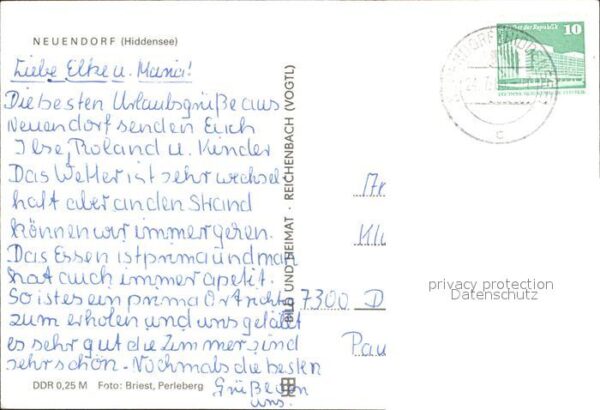 NEUENDORF (Hiddensee)
Liebe Elke u. Maria!
Die besten Urlaubsgrüße aus
Neuendorf senden Euch
Ilse, Roland u. Kinder
Das Wetter ist sehr wechsel
haft aber an den Strand
können wir immer gehen.
Das Essen ist prima und man
hat auch immer apetit.
So ist es ein prima Ort richtig
zum erholen und uns gefällt
es sehr gut die Zimmer sind
sehr schön. Nochmals die besten
Grüße von
uns.
DDR 0,25 M Foto: Briest, Perleberg
BILD UND HEIMAT · REICHENBACH (VOGTL)
10
An
7300 D
Pau
privacy protection
Datenschutz